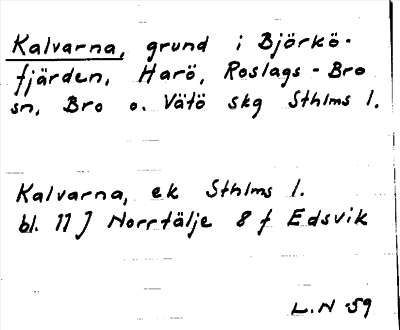 Kalvarna, grund i Björkö-
fjärden, Harö, Roslags-Bro
sn, Bro o. Vätö skg Sthlms l.
Kalvarna, ek Sthlms l.
bl. 11 J Norrtälje 8 f Edsvik
L.N -59